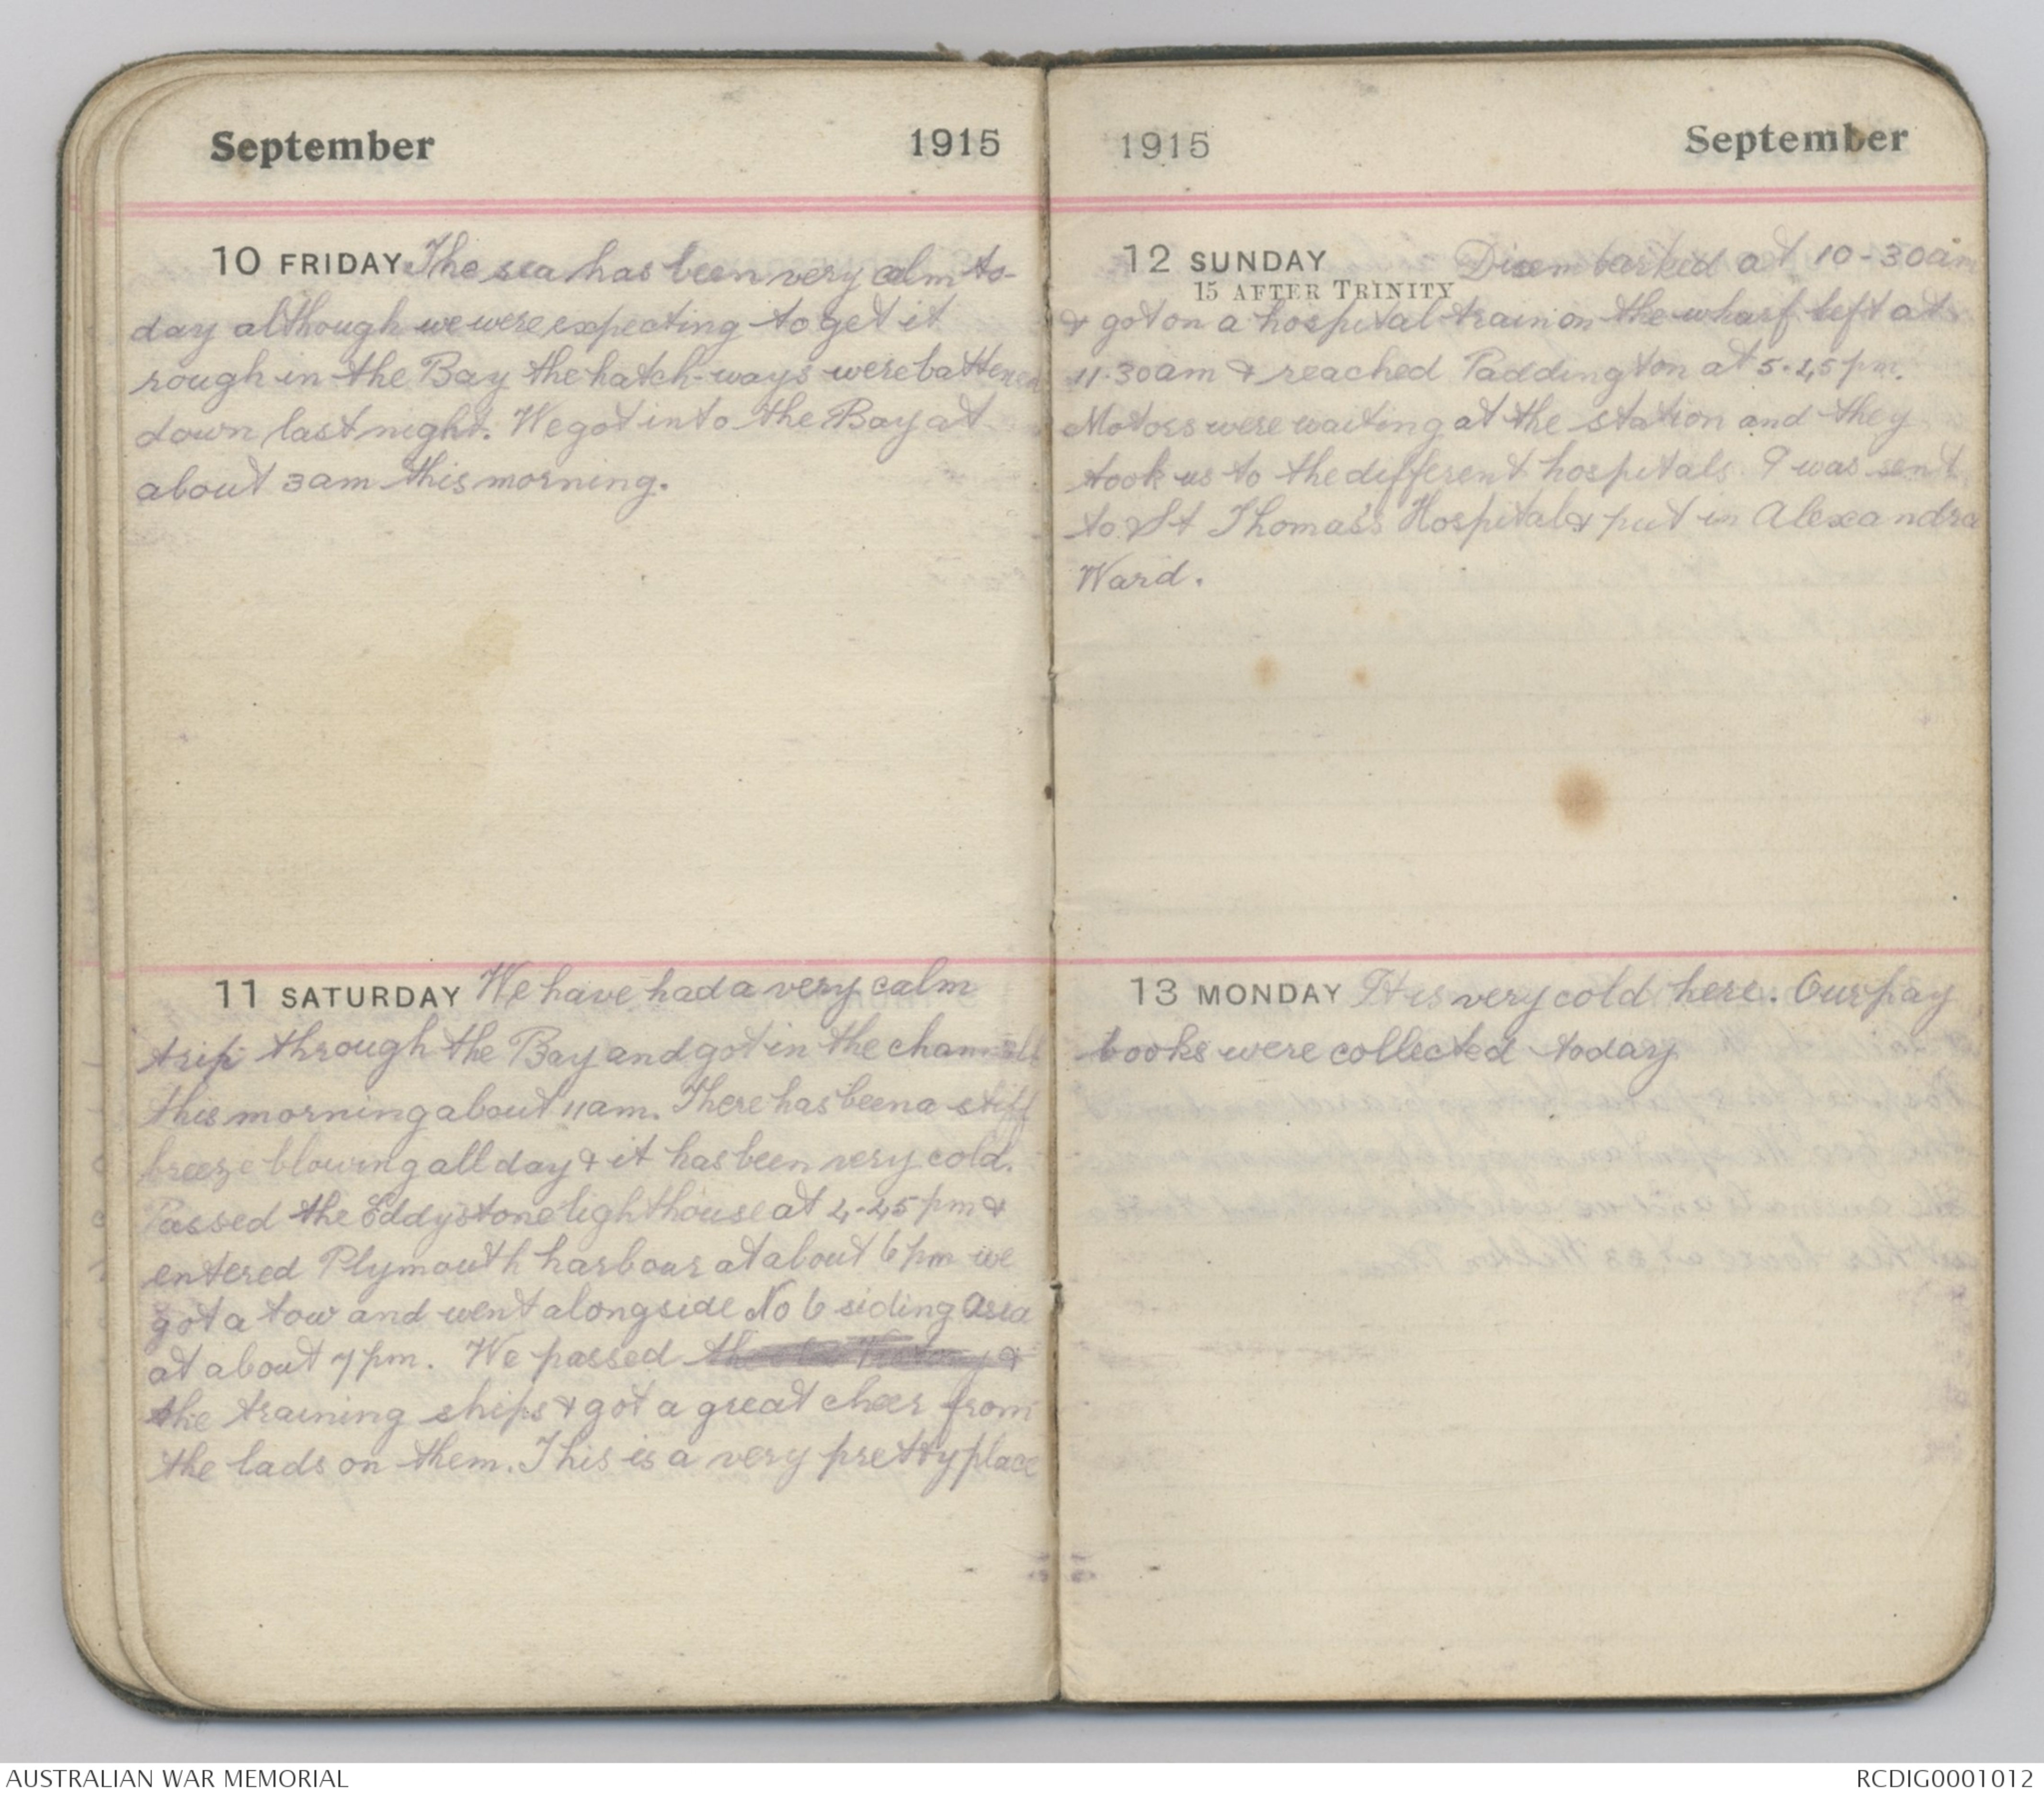 September 1915
10 FRIDAY. The sea has been very calm to-
day although we were expecting to get it
rough in the Bay the hatch-ways were battened
down last night. We got into the Bay at
about 3am this morning.
11 SATURDAY We have had a very calm
trip through the Bay and got in the channel
this morning about 11am. There has been a stiff
breeze blowing all day & it has been very cold.
Passed the Eddystone lighthouse at 4-45pm &
entered Plymouth harbour at about 6pm we
got a tow and went alongside No 6 siding
at about 7pm. We passed the old Victory &
the training ships & got a great cheer from
the lads on them. This is a very pretty place
1915 September
12 SUNDAY Disembarked at 10-30am
15 AFTER TRINITY
& got on a hospital train on the wharf left at
11.30am & reached Paddington at 5.45pm.
Motors were waiting at the station and they
took us to the different hospitals. I was sent
to St Thomas's Hospital & put in Alexandra
Ward.
13 MONDAY It is very cold here. Our pay
books were collected today
AUSTRALIAN WAR MEMORIAL RCDIG0001012